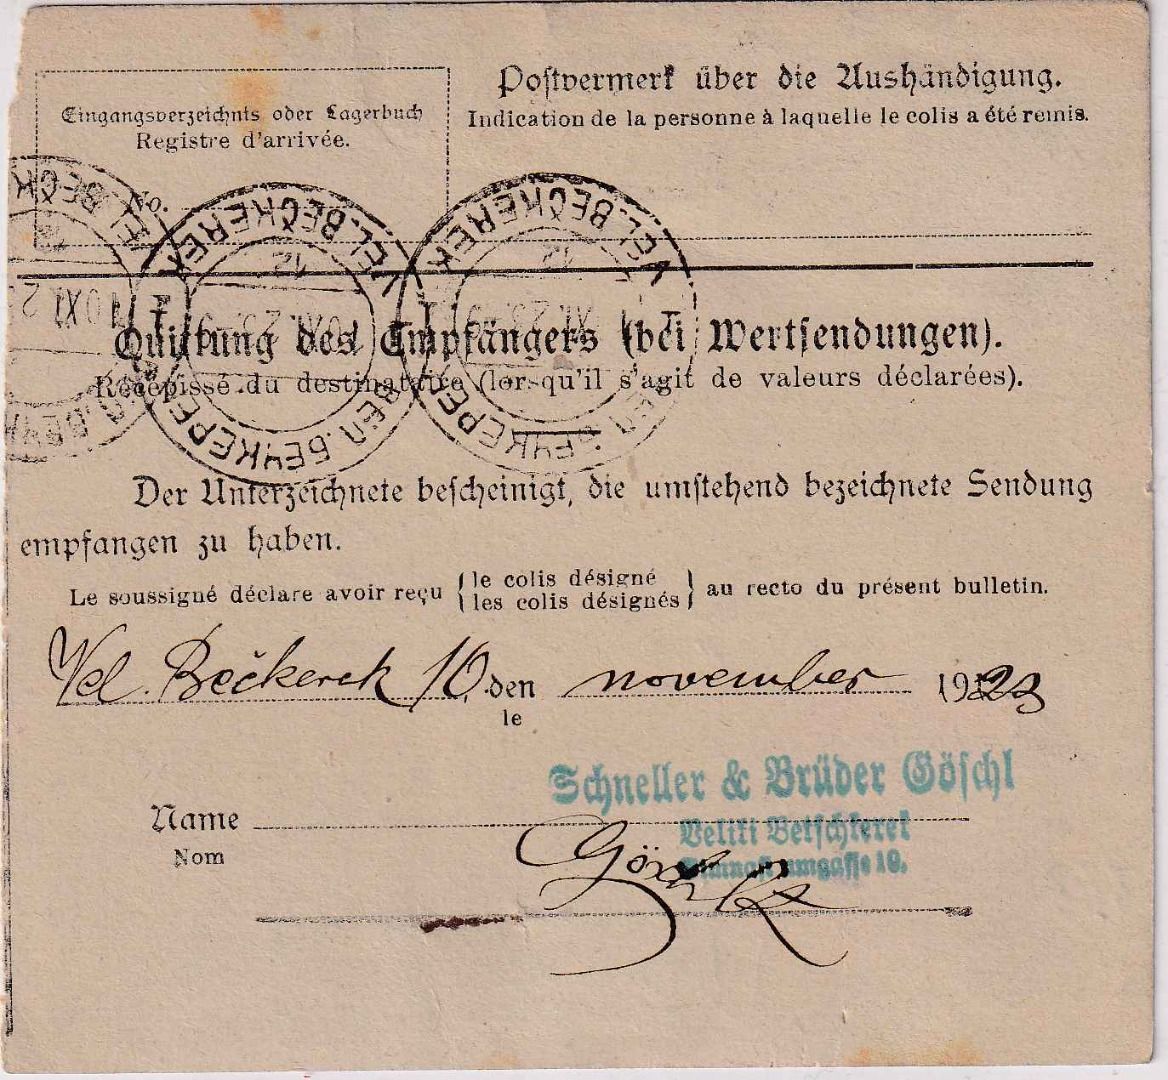 Postvermerk über die Aushändigung.
Indication de la personne à laquelle le colis a été remis.
Eingangsverzeichnis oder Lagerbuch
Registre d'arrivée.
No.
VEL. BEČK
VEL. BEČKEREK
VEL. BEČKEREK
12
12
10 XI. 2
XI. 23
XI. 23
Quittung des Empfängers (bei Wertsendungen).
Récépissé du destinataire (lorsqu'il s'agit de valeurs déclarées).
ВЕЛ. БЕЧКЕРЕК
ВЕЛ. БЕЧКЕРЕК
Der Unterzeichnete bescheinigt, die umstehend bezeichnete Sendung
empfangen zu haben.
Le soussigné déclare avoir reçu { le colis désigné
les colis désignés } au recto du présent bulletin.
Vel. Bečkerek 10, den november 1923
le
Schneller & Brüder Göschl
Veliki Betschkerek
Name
Nom
10.